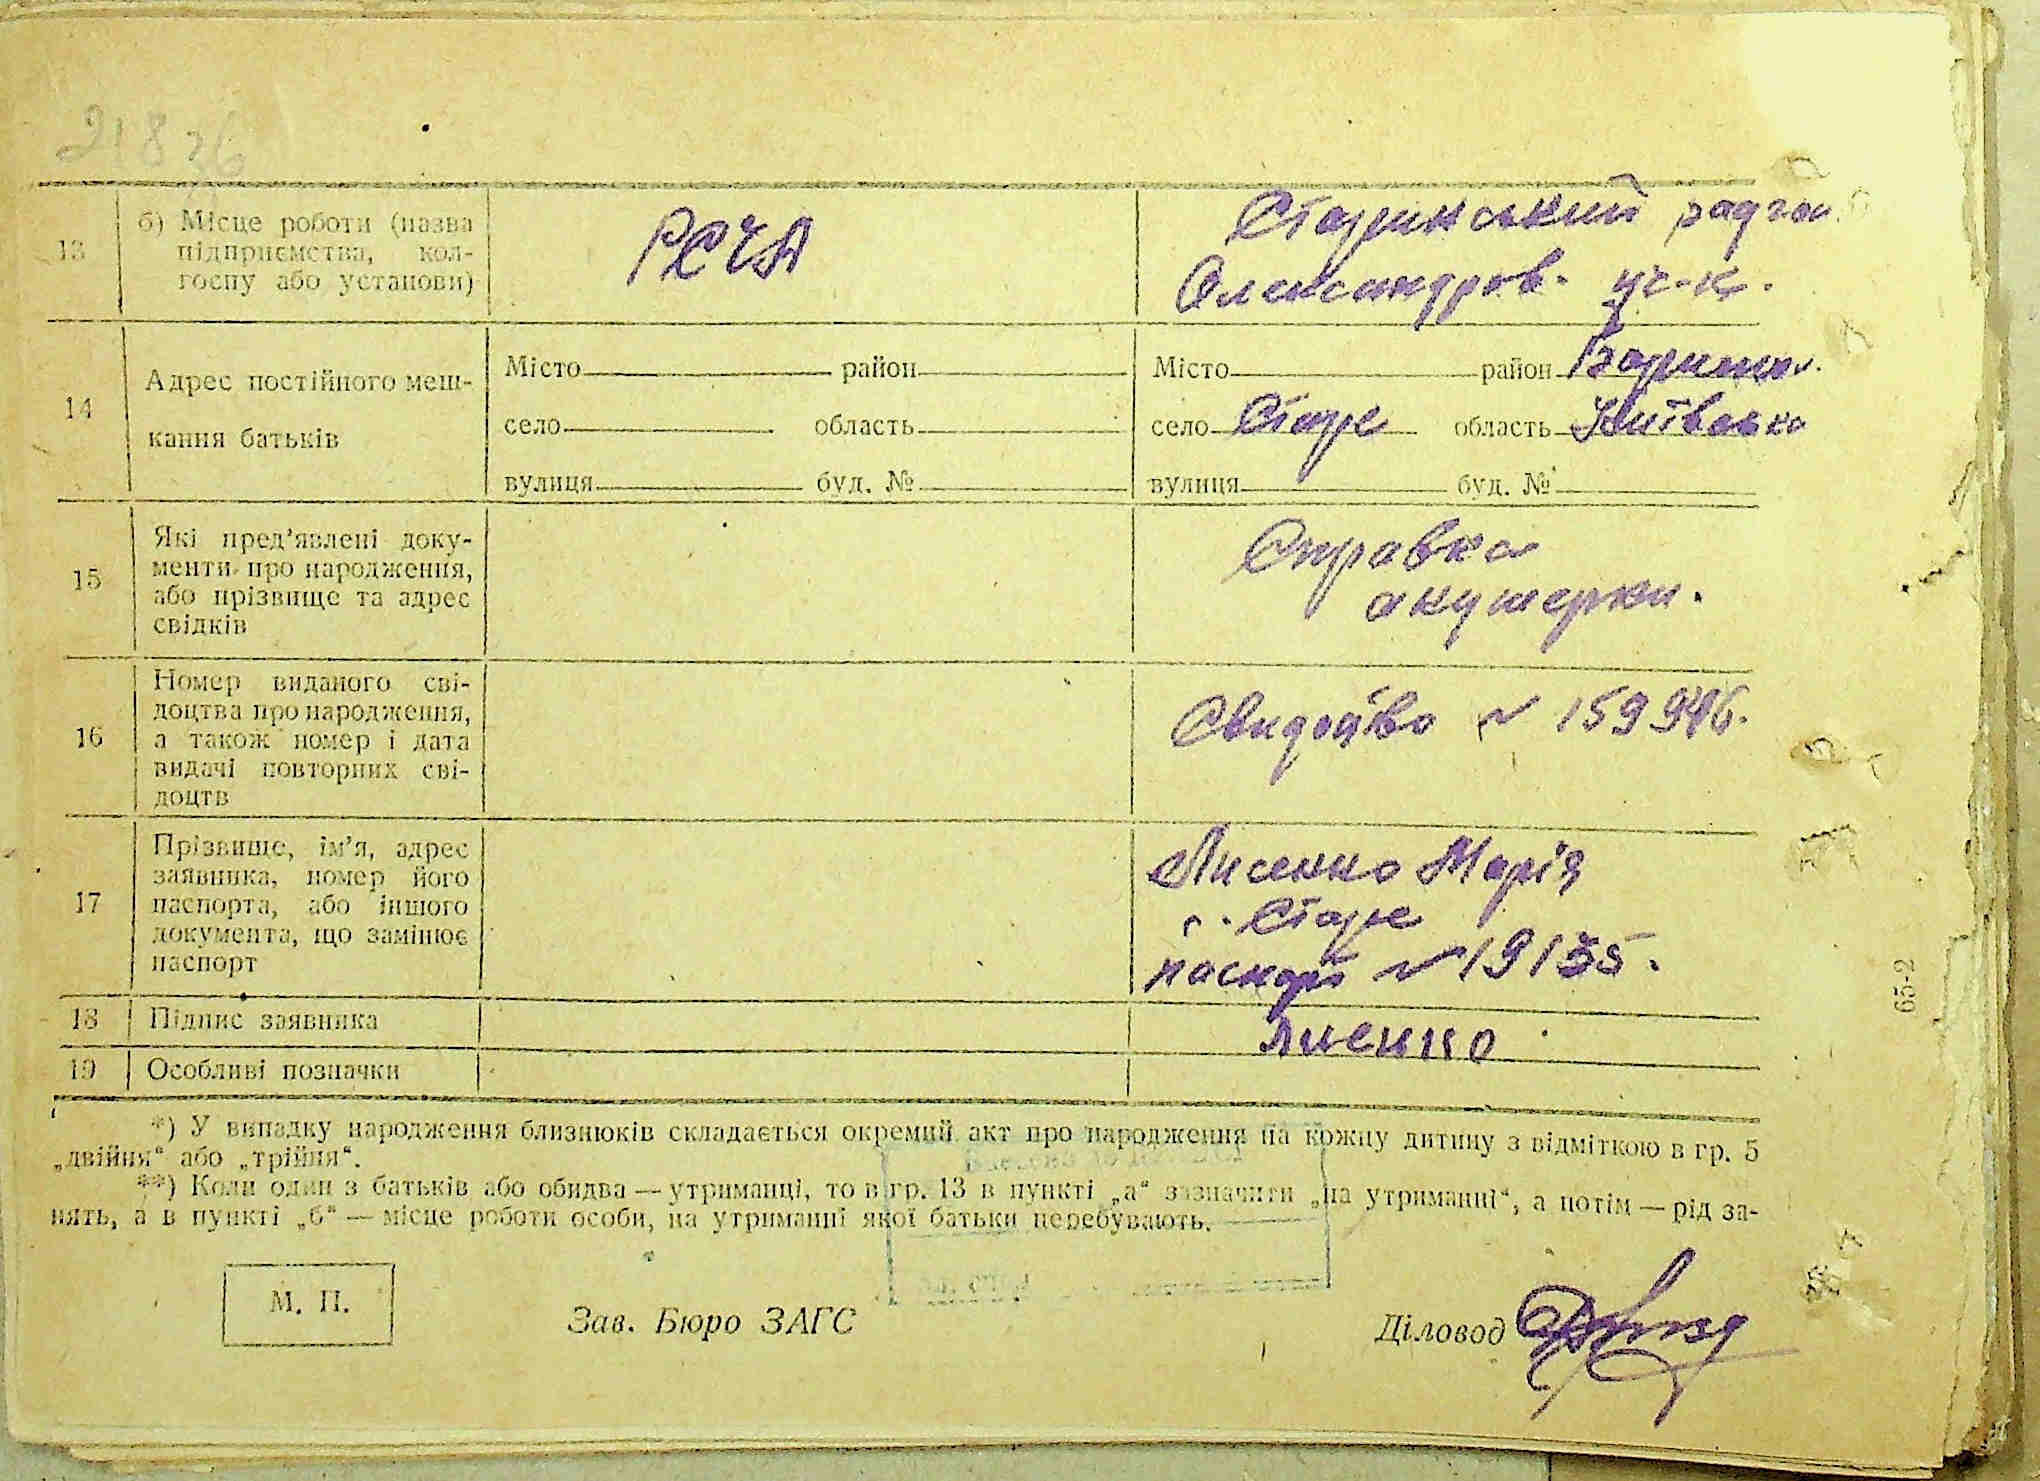 13 б) Місце роботи (назва
підприємства, кол-
госпу або установи)
РСЧА
Старинський радгосп.
Олександров. уч-к.
14 Адрес постійного меш-
кання батьків
Місто район
село область
вулиця буд. №
Місто район Боришпол.
село Старе область Київська
вулиця буд. №
15 Які пред’явлені доку-
менти про народження,
або прізвище та адрес
свідків
Справка
акушерки.
16 Номер виданого сві-
доцтва про народження,
а також номер і дата
видачі повторних сві-
доцтв
№ 159946.
17 Прізвище, ім’я, адрес
заявника, номер його
паспорта, або іншого
документа, що замінює
паспорт
Лисенко Марія
с. Старе
паспорт № 19135.
18 Підпис заявника
Лисенко
19 Особливі позначки
*) У випадку народження близнюків складається окремий акт про народження на кожну дитину з відміткою в гр. 5
„двійня“ або „трійня“.
**) Коли один з батьків або обидва — утриманці, то в гр. 13 в пункті „а“ зазначити „на утриманні“, а потім — рід за-
нять, а в пункті „б“ — місце роботи особи, на утриманні якої батьки перебувають.
М. П.
Зав. Бюро ЗАГС
Діловод
65-2